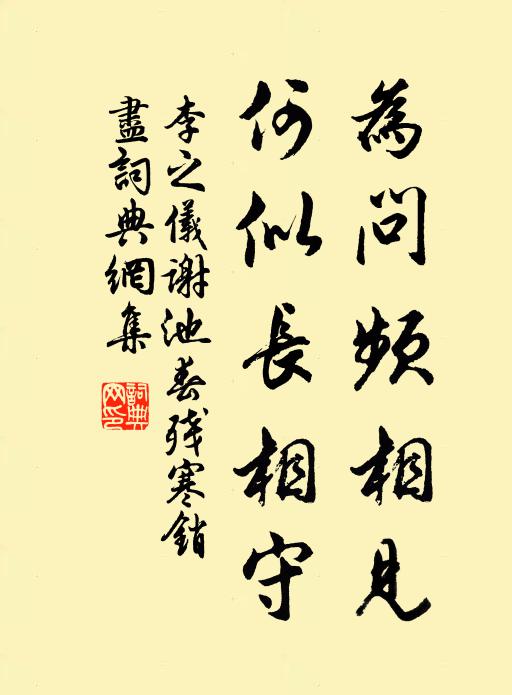 為問頻相見
何似長相守
李之儀謝池春残寒銷
盡詞典網集
詞典
网印